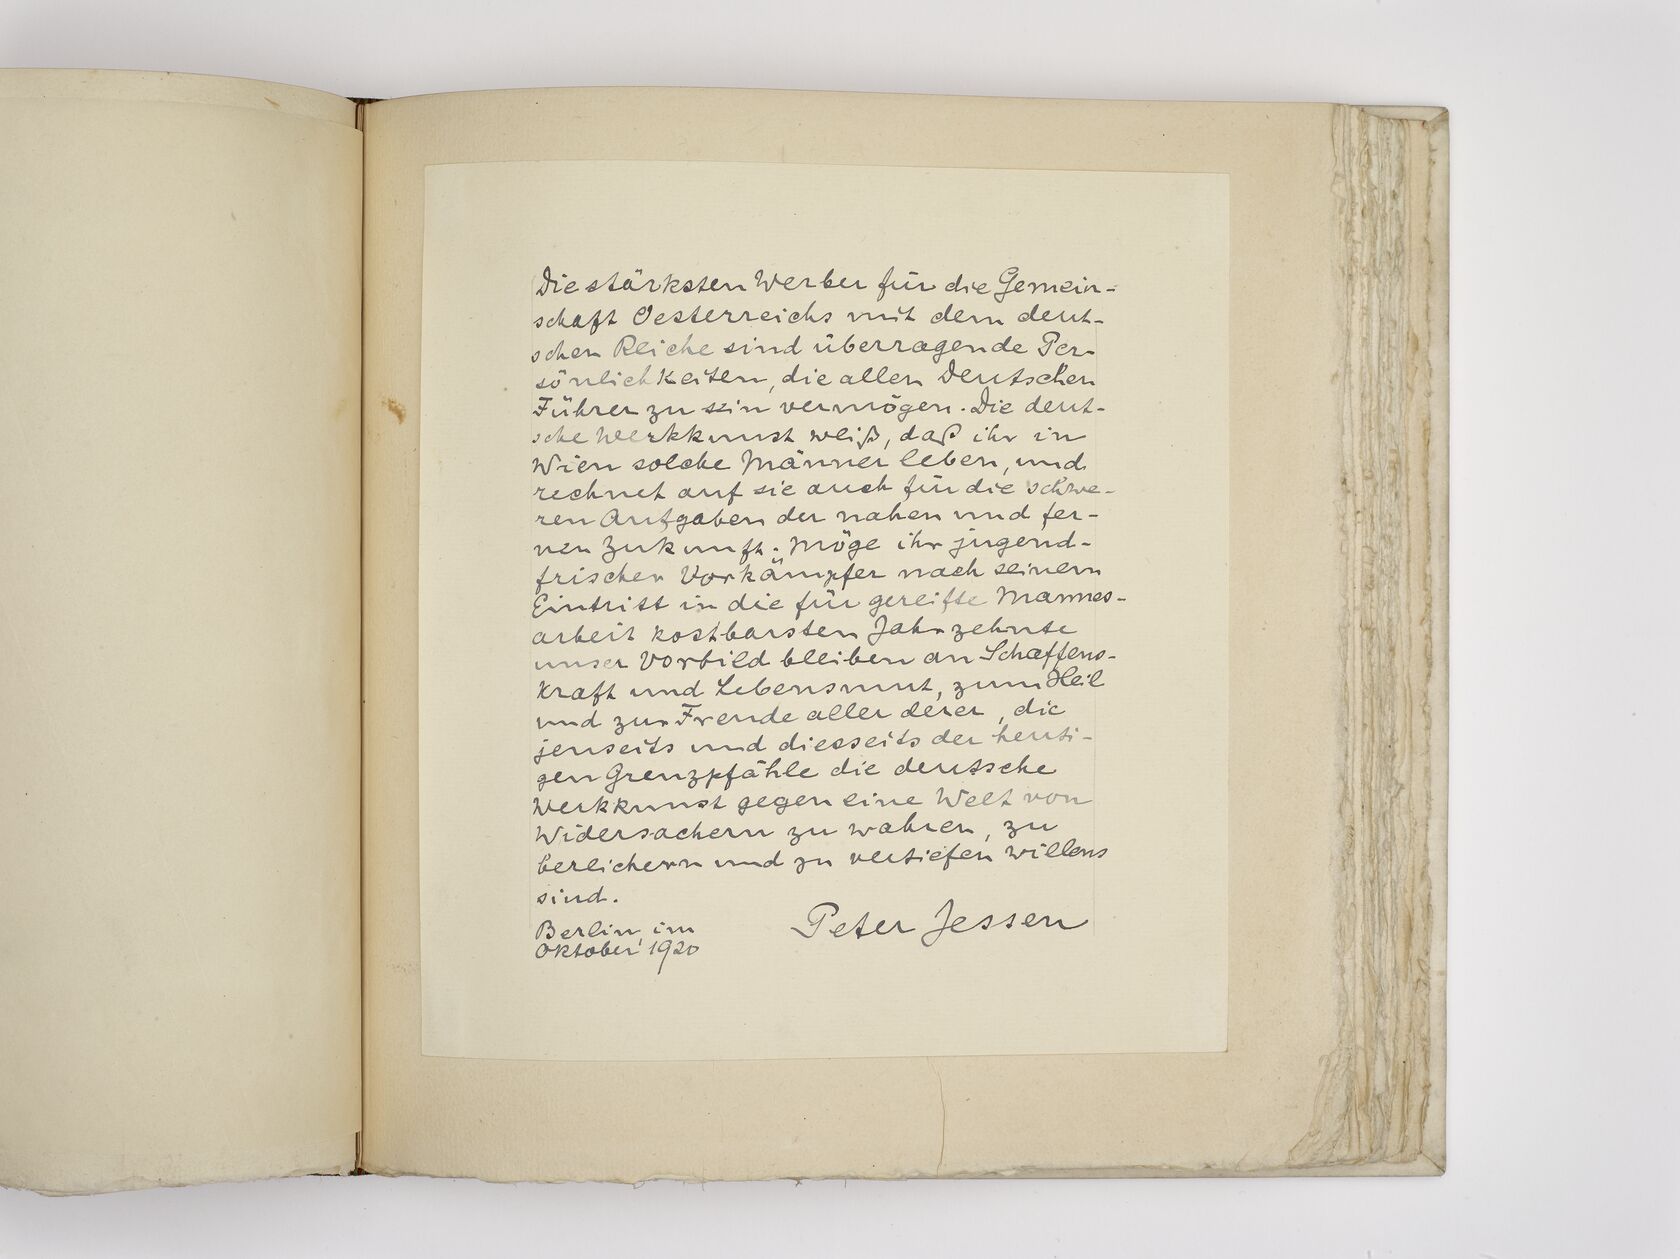 Die stärksten Werber für die Gemein-
schaft Oesterreichs mit dem deut-
schen Reiche sind überragende Per-
sönlichkeiten, die allen Deutschen
Führer zu sein vermögen. Die deut-
sche Werkkunst weiß, daß ihr in
Wien solche Männer leben, und
rechnet auf sie auch für die schwe-
ren Aufgaben der nahen und fer-
nen Zukunft. Möge ihr jugend-
frischer Vorkämpfer nach seinem
Eintritt in die für gereifte Mannes-
arbeit kostbarsten Jahrzehnte
unser Vorbild bleiben an Schaffens-
kraft und Lebensmut, zum Heil
und zur Freude aller derer, die
jenseits und diesseits der heuti-
gen Grenzpfähle die deutsche
Werkkunst gegen eine Welt von
Widersachern zu wahren, zu
bereichern und zu vertiefen willens
sind.
Berlin im Peter Jessen
Oktober 1920